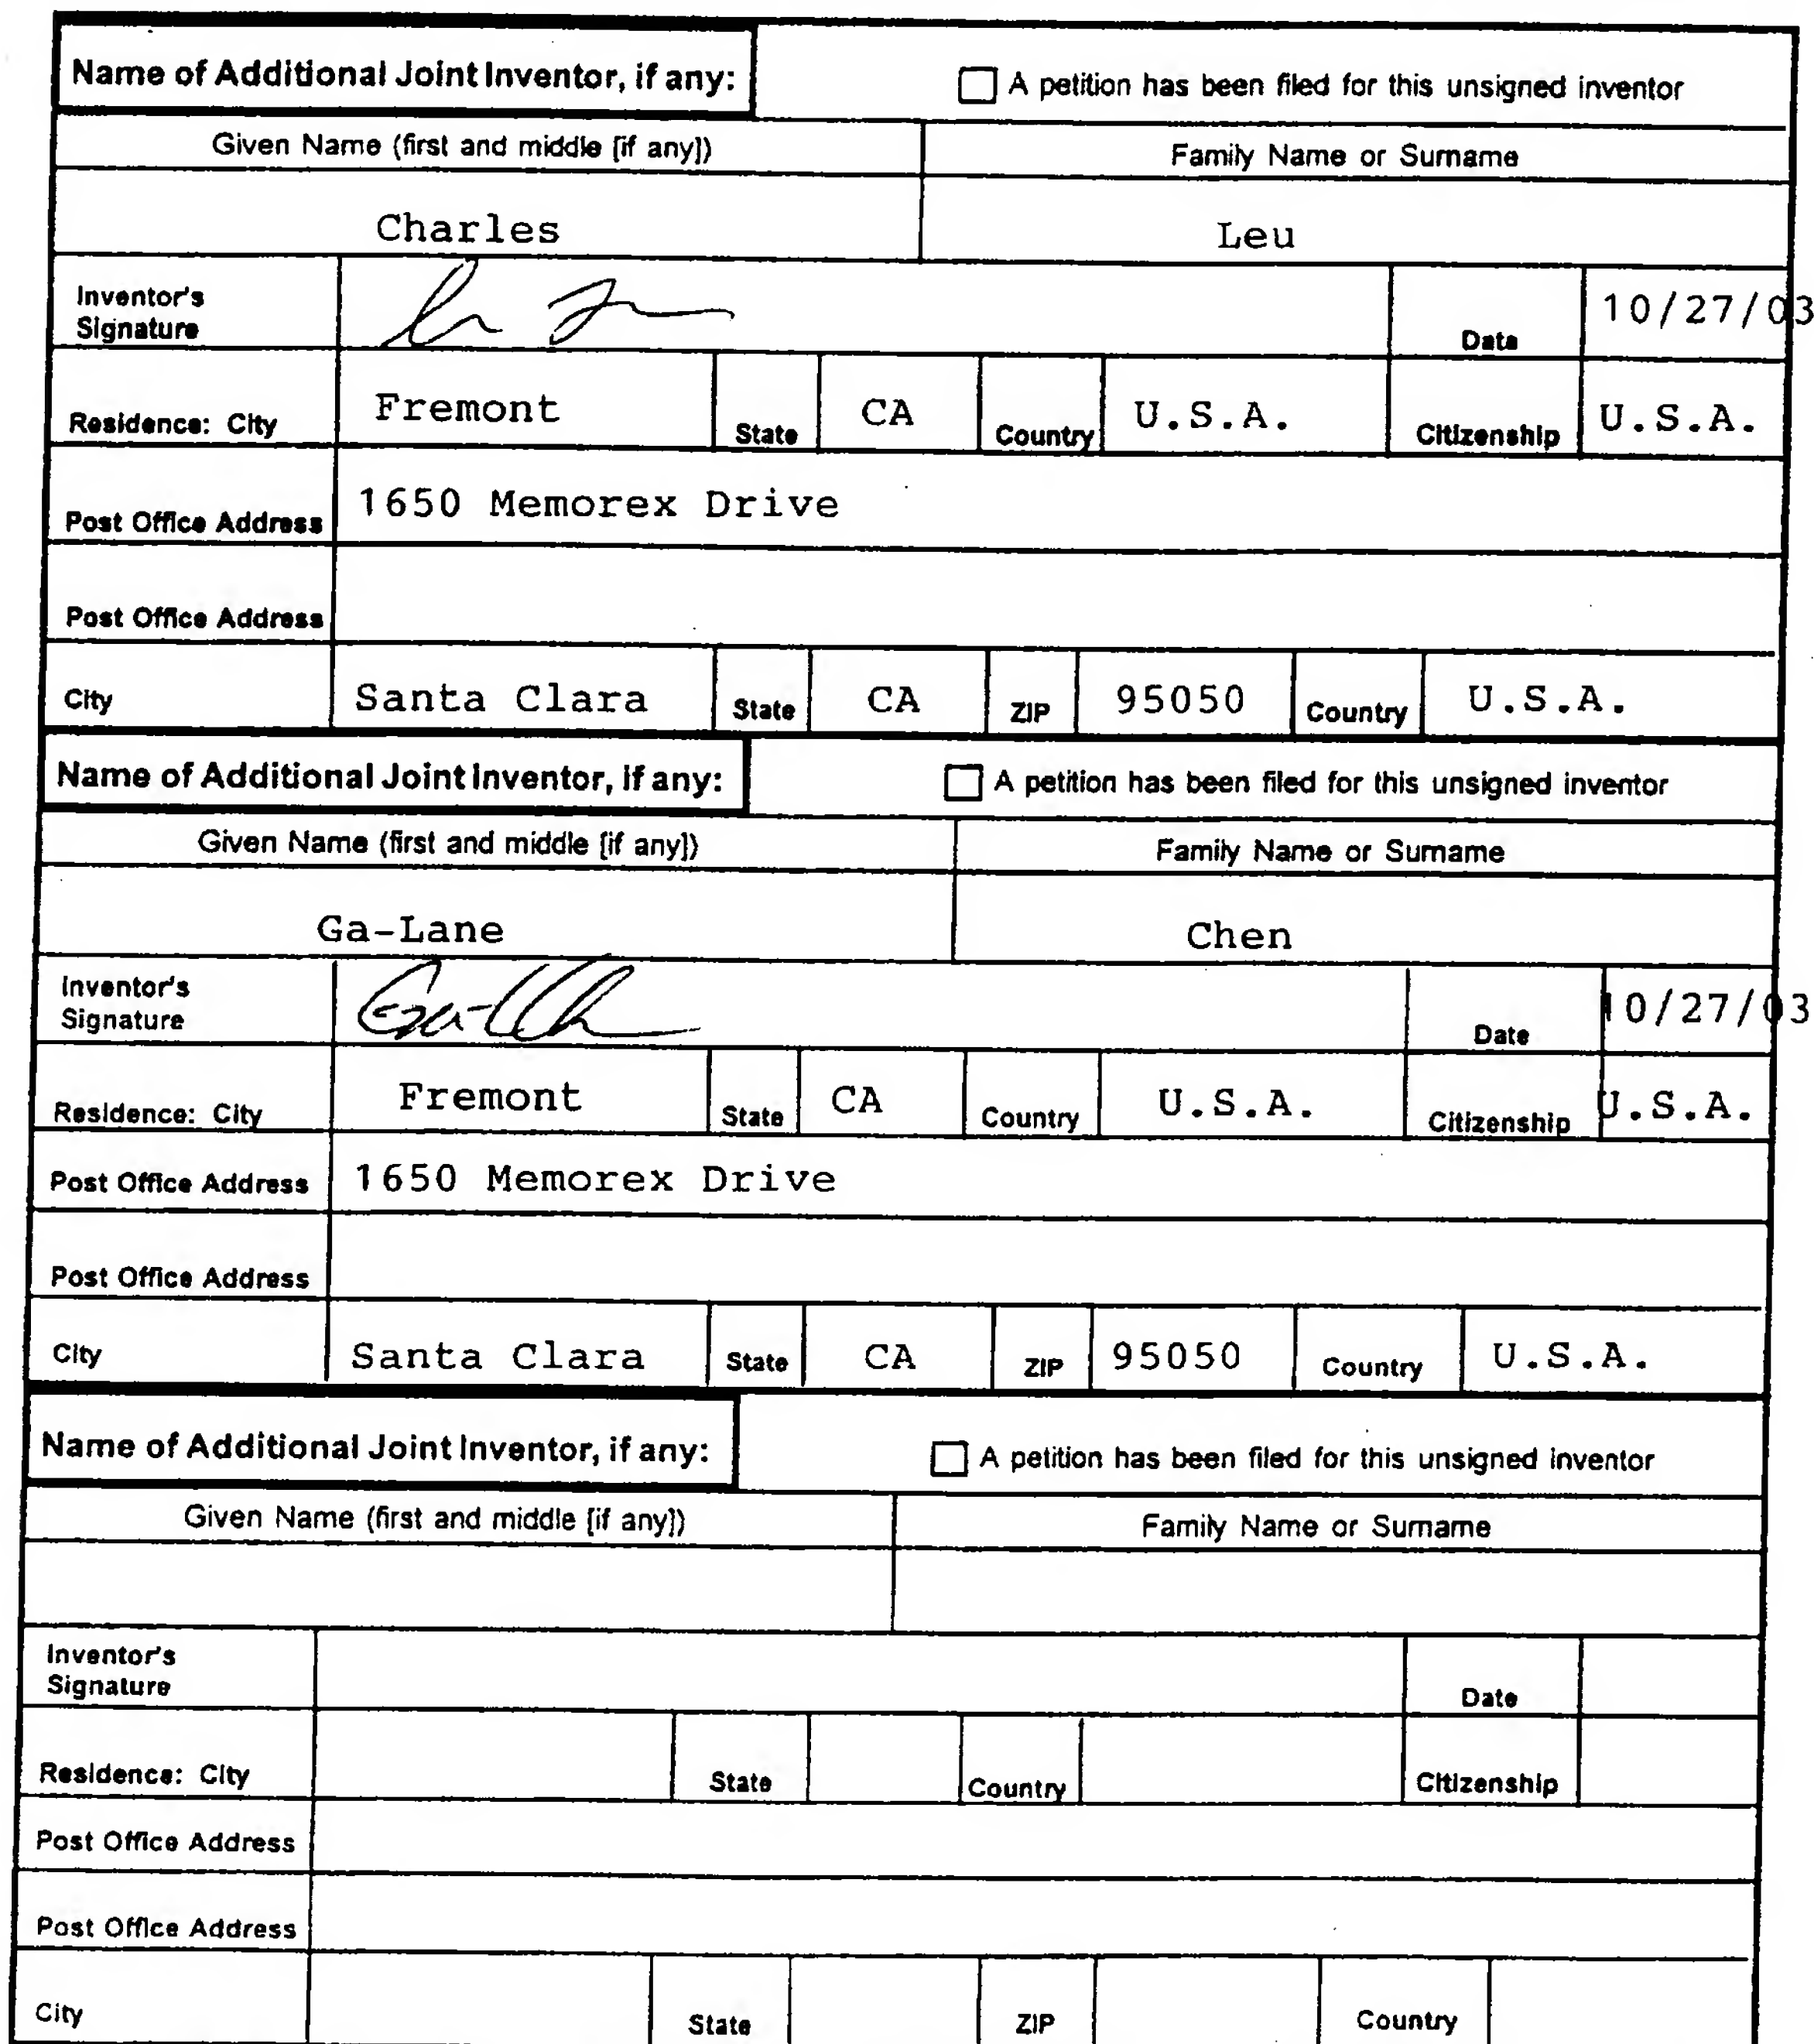 Name of Additional Joint Inventor, if any: ☐ A petition has been filed for this unsigned inventor
Given Name (first and middle [if any]) Family Name or Surname
Charles Leu
Inventor's
Signature Date 10/27/03
Residence: City Fremont State CA Country U.S.A. Citizenship U.S.A.
Post Office Address 1650 Memorex Drive
Post Office Address
City Santa Clara State CA ZIP 95050 Country U.S.A.
Name of Additional Joint Inventor, if any: ☐ A petition has been filed for this unsigned inventor
Given Name (first and middle [if any]) Family Name or Surname
Ga-Lane Chen
Inventor's
Signature Date 10/27/03
Residence: City Fremont State CA Country U.S.A. Citizenship U.S.A.
Post Office Address 1650 Memorex Drive
Post Office Address
City Santa Clara State CA ZIP 95050 Country U.S.A.
Name of Additional Joint Inventor, if any: ☐ A petition has been filed for this unsigned inventor
Given Name (first and middle [if any]) Family Name or Surname
Inventor's
Signature Date
Residence: City State Country Citizenship
Post Office Address
Post Office Address
City State ZIP Country